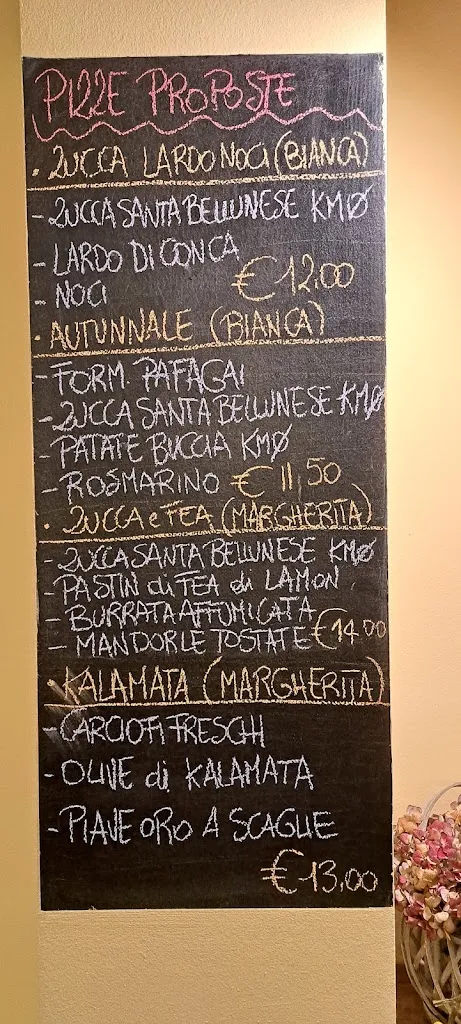 PIZZE PROPOSTE
• ZUCCA LARDO NOCI (BIANCA)
- ZUCCA SANTA BELLUNESE KMØ
- LARDO DI CONCA
€ 12,00
- NOCI
• AUTUNNALE (BIANCA)
- FORM. PAFAGAI
- ZUCCA SANTA BELLUNESE KMØ
- PATATE BUCCIA KMØ
- ROSMARINO € 11,50
• ZUCCA e TEA (MARGHERITA)
- ZUCCA SANTA BELLUNESE KMØ
- PASTIN di TEA di LAMON
- BURRATA AFFUMICATA
- MANDORLE TOSTATE € 14,00
• KALAMATA (MARGHERITA)
- CARCIOFI FRESCHI
- OLIVE di KALAMATA
- PIAVE ORO A SCAGLIE
€ 13,00